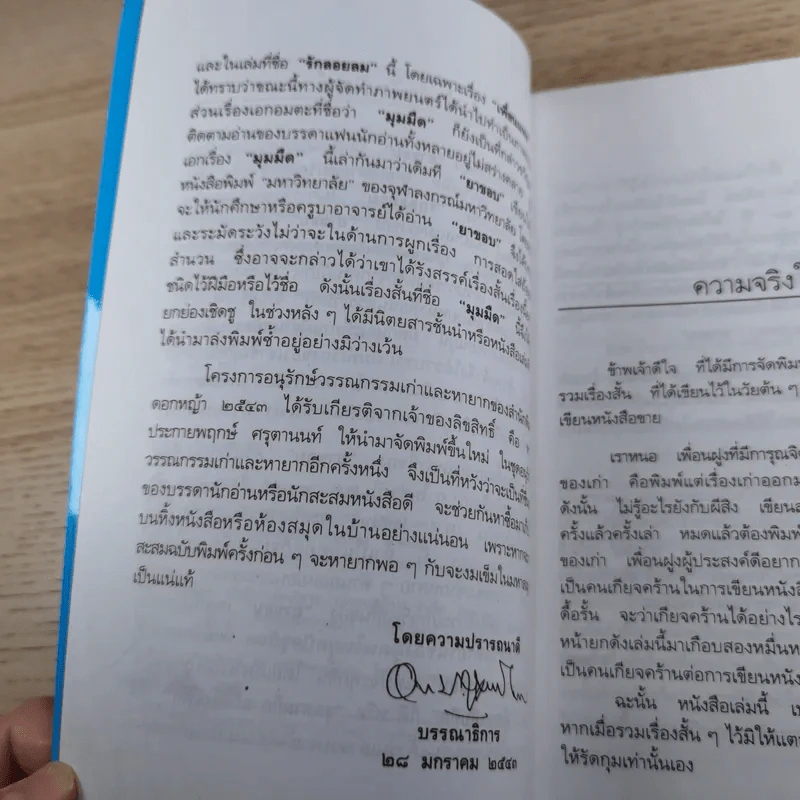 และในเล่มที่ชื่อ "รักลอยลม" นี้ โดยเฉพาะเรื่อง
ได้ทราบว่าขณะนี้ทางผู้จัดทำภาพยนตร์ได้นำไปทำเป็น
ส่วนเรื่องเอกอมตะที่ชื่อว่า "มุมมืด" ก็ยังเป็นที่
ติดตามอ่านของบรรดาแฟนนักอ่านทั้งหลายอยู่ไม่สร่าง
เอกเรื่อง "มุมมืด" นี้เล่ากันมาว่าเดิมที "ยาขอบ"
หนังสือพิมพ์ "มหาวิทยาลัย" ของจุฬาลงกรณ์มหาวิทยาลัย
จะให้นักศึกษาหรือครูบาอาจารย์ได้อ่าน "ยาขอบ"
และระมัดระวังไม่ว่าจะในด้านการผูกเรื่อง การสอดใส่
สำนวน ซึ่งอาจจะกล่าวได้ว่าเขาได้รังสรรค์เรื่องสั้นเรื่อง
ชนิดไว้ฝีมือหรือไว้ชื่อ ดังนั้นเรื่องสั้นที่ชื่อ "มุมมืด"
ยกย่องเชิดชู ในช่วงหลัง ๆ ได้มีนิตยสารชั้นนำหรือหนังสือ
ได้นำมาลงพิมพ์ซ้ำอยู่อย่างมิว่างเว้น
โครงการอนุรักษ์วรรณกรรมเก่าและหายากของสำนัก
ดอกหญ้า ๒๕๔๓ ได้รับเกียรติจากเจ้าของลิขสิทธิ์ คือ
ประกายพฤกษ์ ศรุตานนท์ ให้นำมาจัดพิมพ์ขึ้นใหม่ ในชุด
วรรณกรรมเก่าและหายากอีกครั้งหนึ่ง จึงเป็นที่หวังว่าจะเป็น
ของบรรดานักอ่านหรือนักสะสมหนังสือดี จะช่วยกันหาซื้อ
บนหิ้งหนังสือหรือห้องสมุดในบ้านอย่างแน่นอน เพราะหาก
สะสมฉบับพิมพ์ครั้งก่อน ๆ จะหายากพอ ๆ กับจะงมเข็มในมหา
เป็นแน่แท้
โดยความปรารถนาดี
บรรณาธิการ
๒๘ มกราคม ๒๕๔๓
ความจริง
ข้าพเจ้าดีใจ ที่ได้มีการจัดพิมพ์
รวมเรื่องสั้น ที่ได้เขียนไว้ในวัยต้น ๆ
เขียนหนังสือขาย
เราหนอ เพื่อนฝูงที่มีการุณ
ของเก่า คือพิมพ์แต่เรื่องเก่าออก
ดังนั้น ไม่รู้อะไรยังกับผีสิง เขียน
ครั้งแล้วครั้งเล่า หมดแล้วต้องพิมพ์
ของเก่า เพื่อนฝูงผู้ประสงค์ดีอยาก
เป็นคนเกียจคร้านในการเขียนหนังสือ
ดื้อรั้น จะว่าเกียจคร้านได้อย่างไร
หน้ายกดังเล่มนี้มาเกือบสองหมื่น
เป็นคนเกียจคร้านต่อการเขียนหนัง
ฉะนั้น หนังสือเล่มนี้
หากเมื่อรวมเรื่องสั้น ๆ ไว้มิให้แต
ให้รัดกุมเท่านั้นเอง